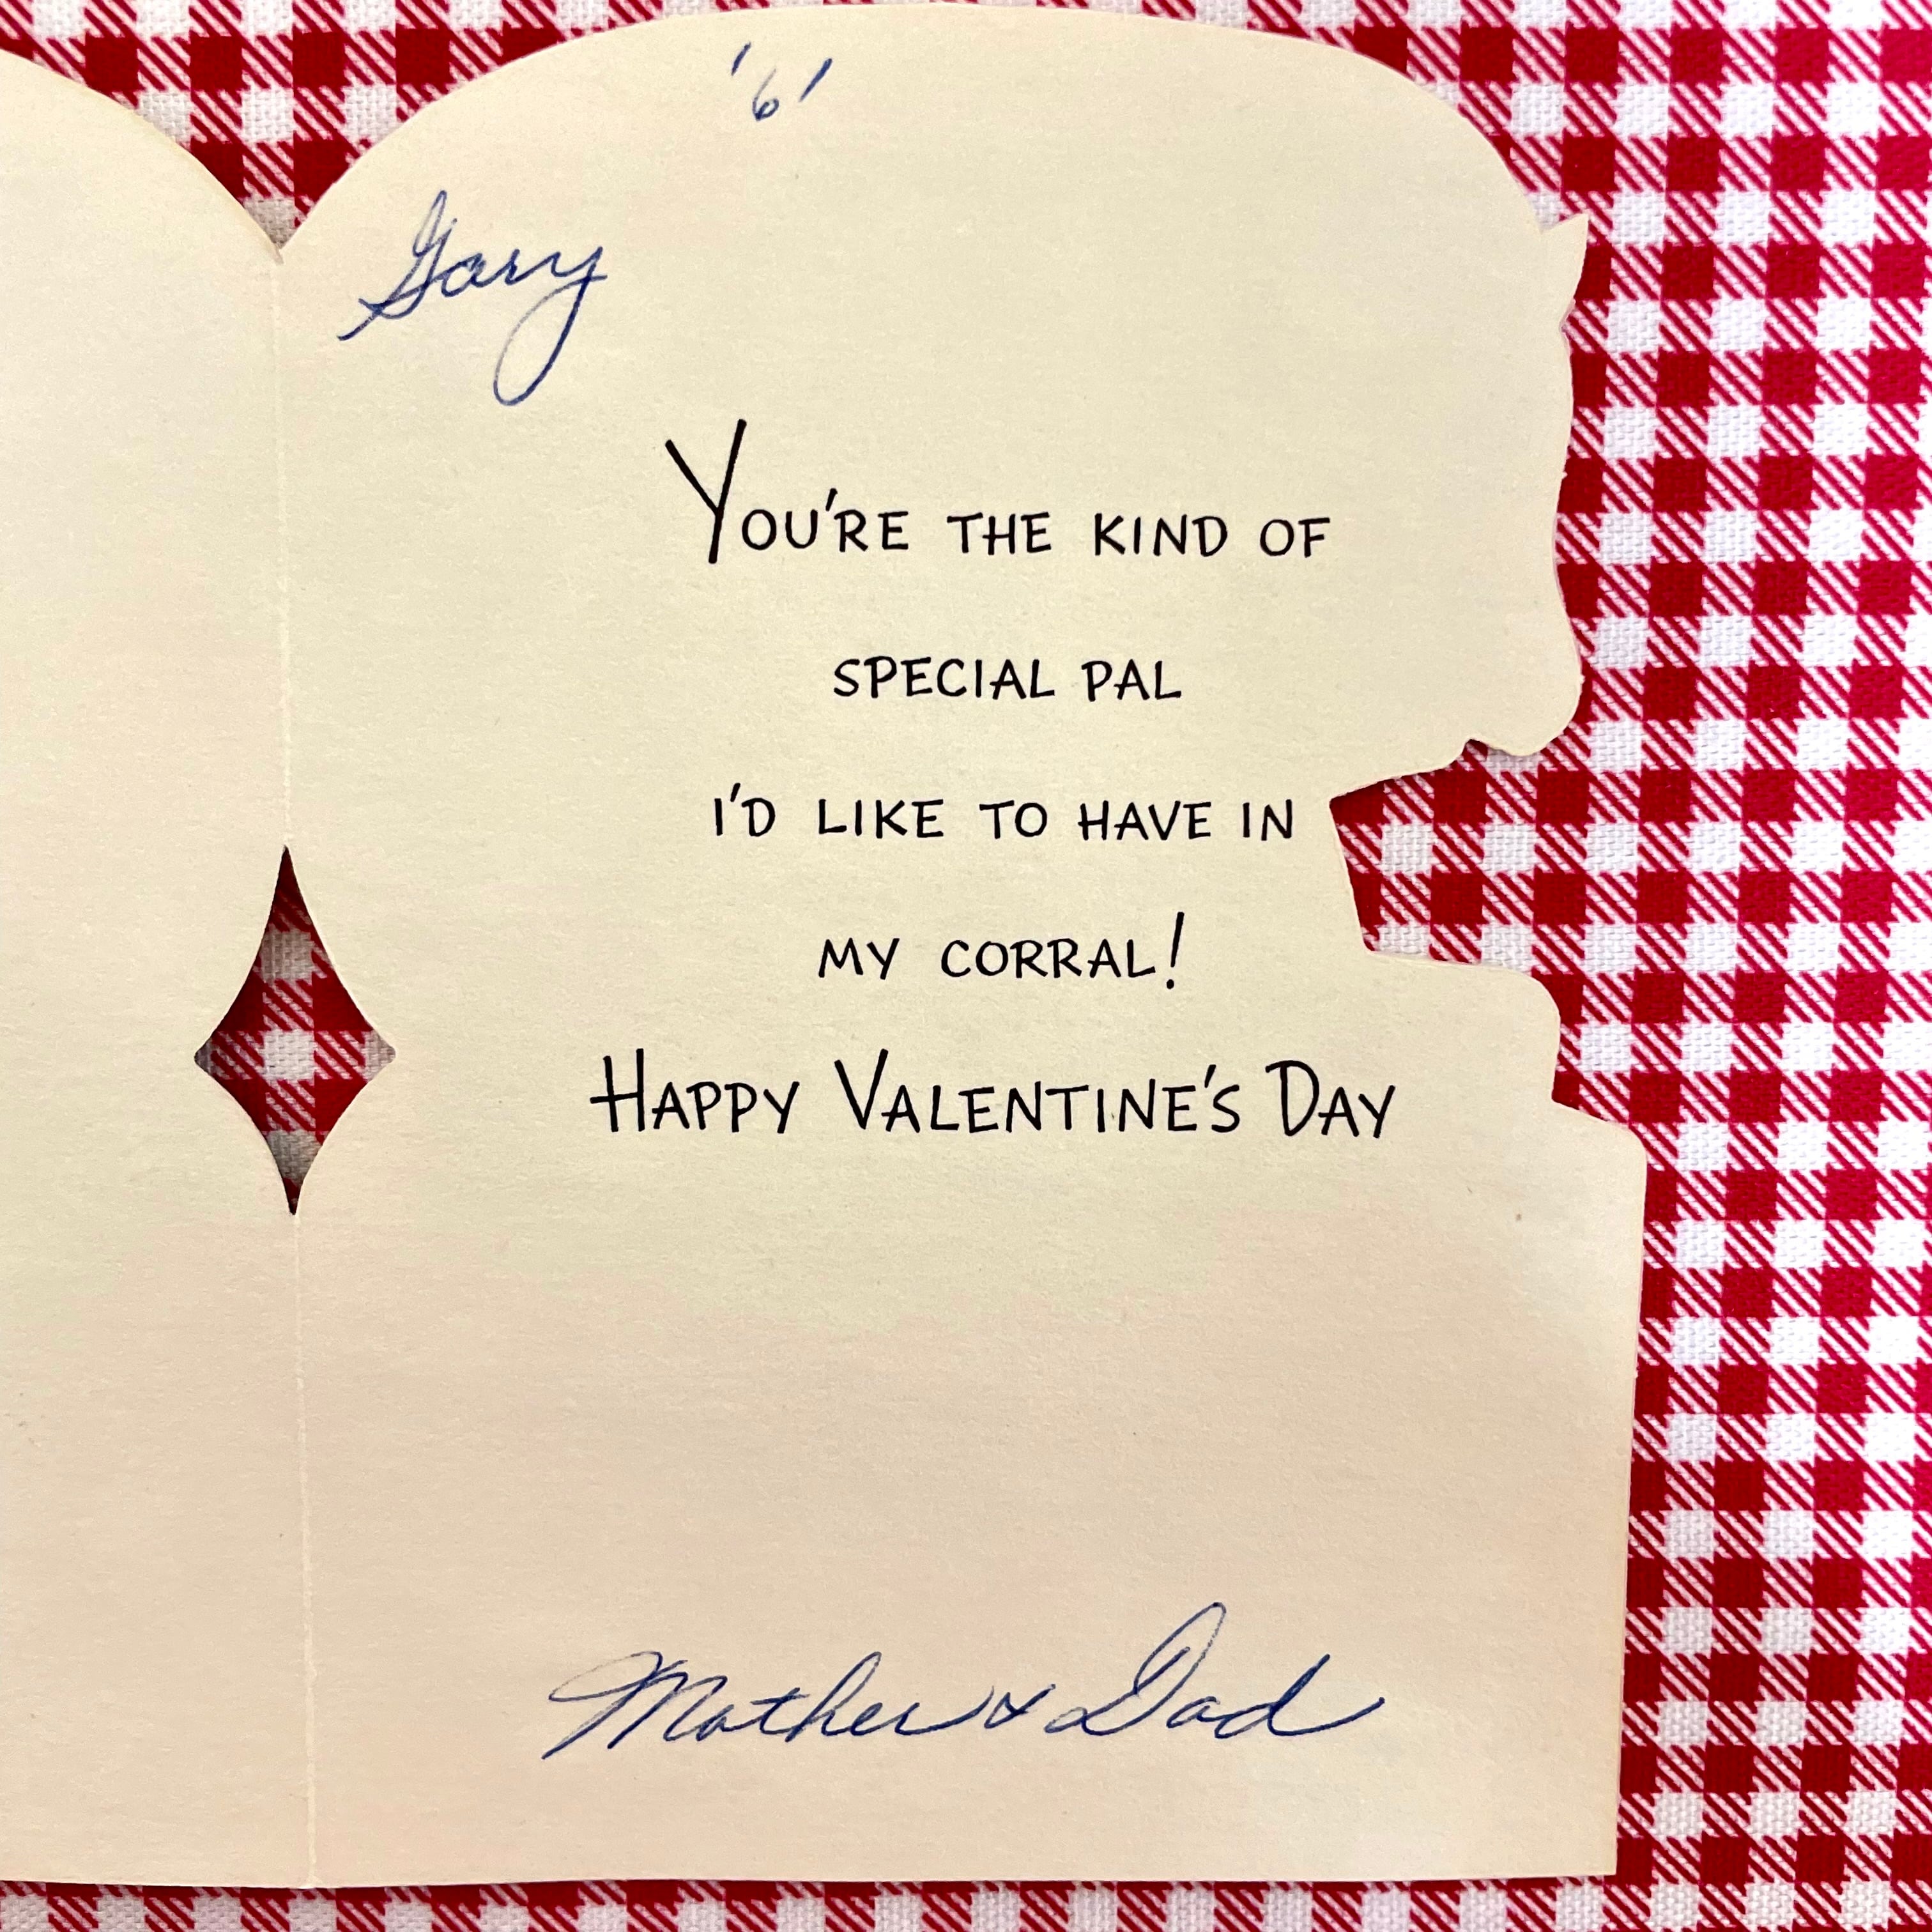 '61
Gary
YOU'RE THE KIND OF
SPECIAL PAL
I'D LIKE TO HAVE IN
MY CORRAL!
HAPPY VALENTINE'S DAY
Mother & Dad